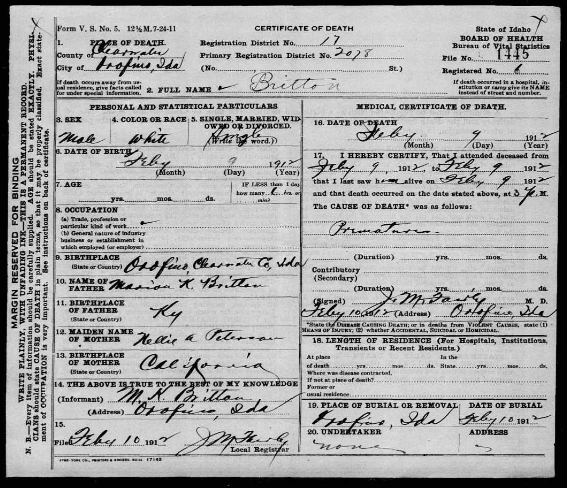 Form V. S. No. 5. 12½M.7-24-11
CERTIFICATE OF DEATH
State of Idaho
BOARD OF HEALTH
Bureau of Vital Statistics
File No. 1445
Registered No. 6
If death occurred in a hospital, institution or camp give its NAME instead of street and number.
1. PLACE OF DEATH.
County of Clearwater
City of Orofino, Ida
If death occurs away from usual residence, give facts called for under special information.
Registration District No. 17
Primary Registration District No. 2078
(No. St.)
2. FULL NAME Britton
PERSONAL AND STATISTICAL PARTICULARS
3. SEX
Male
4. COLOR OR RACE
White
5. SINGLE, MARRIED, WIDOWED OR DIVORCED.
(Write the word.)
Single
6. DATE OF BIRTH
Feby 9 1912
(Month) (Day) (Year)
7. AGE
yrs. mos. ds.
IF LESS than 1 day how many hrs. or min?
8. OCCUPATION
(a) Trade, profession or particular kind of work
(b) General nature of industry business or establishment in which employed (or employer)
9. BIRTHPLACE
(State or Country) Orofino, Clearwater Co, Ida
10. NAME OF FATHER Marion K. Britton
11. BIRTHPLACE OF FATHER
(State or Country) Ky
12. MAIDEN NAME OF MOTHER Nellie A Peterson
13. BIRTHPLACE OF MOTHER
(State or Country) California
14. THE ABOVE IS TRUE TO THE BEST OF MY KNOWLEDGE
(Informant) M. K. Britton
(Address) Orofino, Ida
15.
Filed Feby 10 1912 J M Fairly
Local Registrar
MEDICAL CERTIFICATE OF DEATH.
16. DATE OF DEATH
Feby 9 1912
(Month) (Day) (Year)
17. I HEREBY CERTIFY, That I attended deceased from
Feby 9 1912, to Feby 9 1912
that I last saw him alive on Feby 9 1912
and that death occurred on the date stated above, at 3 P. M.
The CAUSE OF DEATH* was as follows:
Premature
(Duration) yrs. mos. ds.
Contributory
(Secondary)
(Duration) yrs. mos. ds.
(Signed) J. M. Fairly M. D.
Feby 10 1912 (Address) Orofino, Ida
*State the DISEASE CAUSING DEATH; or in deaths from VIOLENT CAUSES, state (1) MEANS OF INJURY; (2) whether ACCIDENTAL, SUICIDAL or HOMICIDAL.
18. LENGTH OF RESIDENCE (For Hospitals, Institutions, Transients or Recent Residents.)
At place of death yrs. mos. ds. In the State yrs. mos. ds.
Where was disease contracted,
If not at place of death?
Former or usual residence
19. PLACE OF BURIAL OR REMOVAL
Orofino, Ida
DATE OF BURIAL
Feby 10 1912
20. UNDERTAKER
none
ADDRESS
MARGIN RESERVED FOR BINDING
WRITE PLAINLY, WITH UNFADING INK—THIS IS A PERMANENT RECORD.
N. B.—Every item of information should be carefully supplied. AGE should be stated EXACTLY. PHYSICIANS should state CAUSE OF DEATH in plain terms, so that it may be properly classified. Exact statement of OCCUPATION is very important. See instructions on back of certificate.
17142